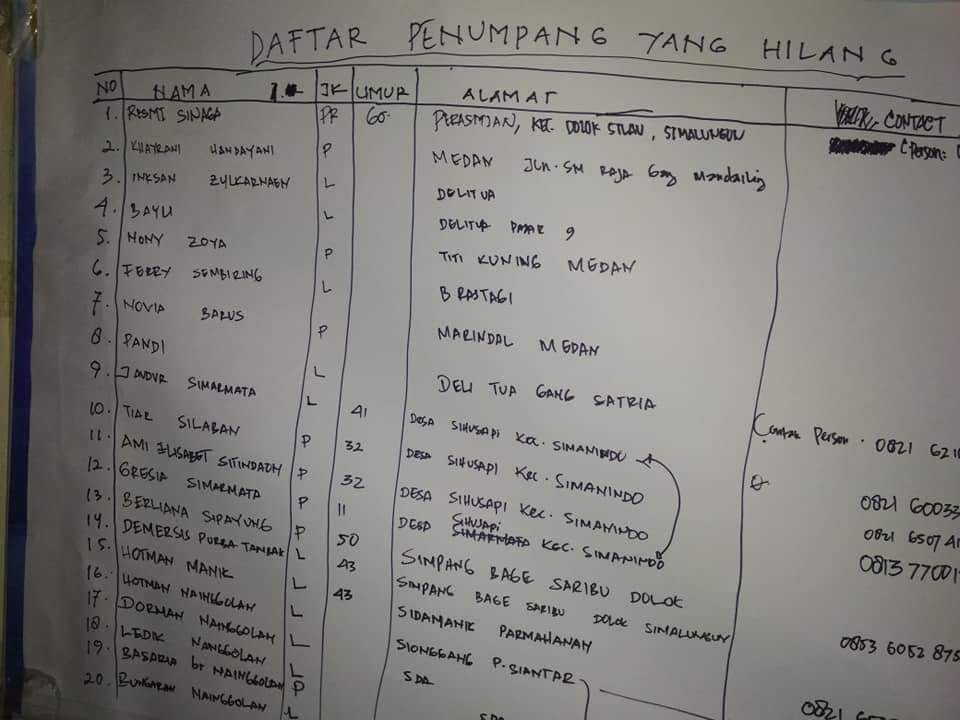 DAFTAR PENUMPANG YANG HILANG
NO NAMA JK UMUR ALAMAT CONTACT
(Person:
1. RESMI SINAGA PR 60. PERASMIAN, KEC. DOLOK SILAU, SIMALUNGUN
2. KHAYRANI HANDAYANI P MEDAN JLN. SM RAJA Gang Mandailing
3. IKHSAN ZYLKARNAEN L DELITUA
4. BAYU L DELITUA PASAR 9
5. NONY ZOYA P TITI KUNING MEDAN
6. FERRY SEMBIRING L BRASTAGI
7. NOVIA BARUS P MARINDAL MEDAN
8. PANDI L DELI TUA GANG SATRIA
9. JANDUR SIMARMATA L 41 DESA SIHUSAPI KEC. SIMANINDO Contak Person. 0821 6210
10. TIAR SILABAN P 32 DESA SIHUSAPI KEC. SIMANINDO
11. AMI ELISABET SITINDAON P 32 DESA SIHUSAPI KEC. SIMANINDO 0821 60033
12. GRESIA SIMARMATA P 11 DESA SIHUSAPI SIMARMATA KEC. SIMANINDO 0821 6507 41
13. BERLIANA SIPAYUNG P 50 SIMPANG BAGE SARIBU DOLOK 0813 77001
14. DEMERSIS PURBA TAMBAK L 43 SIMPANG BAGE SARIBU DOLOK SIMALUNGUN
15. HOTMAN MANIK L 43 SIDAMANIK PARMAHANAN 0853 6052 875
16. HOTMAN NAINGGOLAN L SIONGGANG P. SIANTAR
17. DORMAN NAINGGOLAN L SDA
18. LEDIK NANGGOLAN L SDA
19. BASARIA br NAINGGOLAN P
20. BUNGARAN NAINGGOLAN L
0821